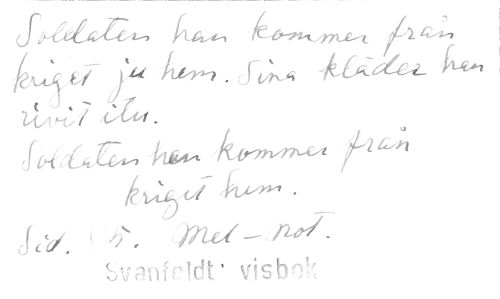 Soldaten han kommer från
kriget ju hem. Sina kläder han
rivit itu.
Soldaten han kommer från
kriget hem.
Sid. 5. Mel-not.
Svanfeldt' visbok